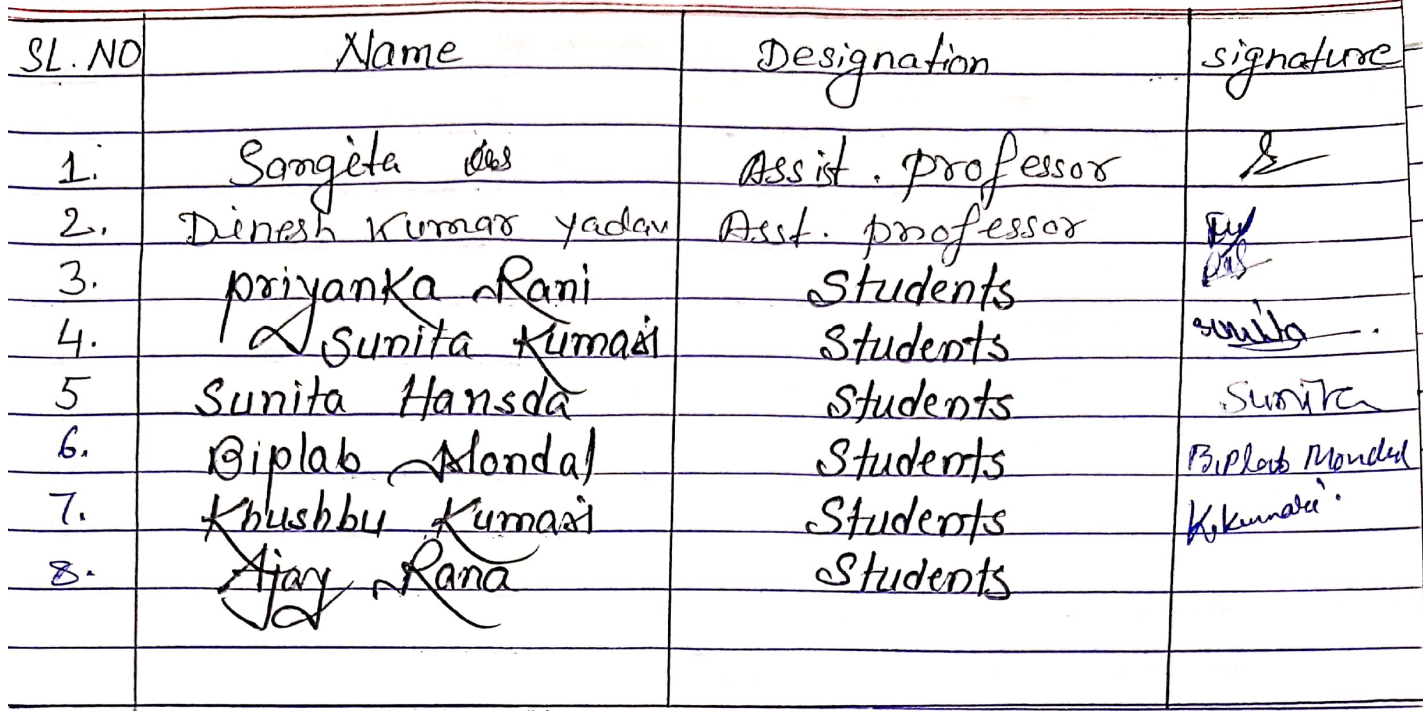 SL. NO Name Designation signature
1. Sangeta das Assist. professor
2. Dinesh Kumar yadav Asst. professor
3. priyanka Rani Students
4. Sunita Kumari Students sunita
5 Sunita Hansda Students Sunita
6. Biplab Mondal Students Biplab Mondal
7. Khushbu Kumari Students K. Kumari
8. Ajay Rana Students